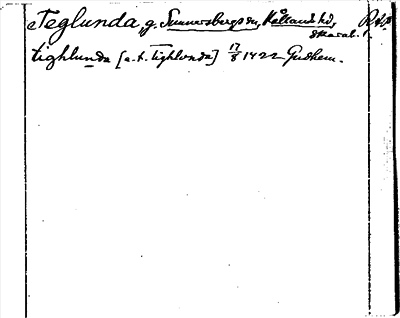 Teglunda, g. Sunnersbergs sn, Kållands hd, Råp
Skarab. l.
tighlunda [a. t. tighlonda] 17/8 1422 Gudhem.